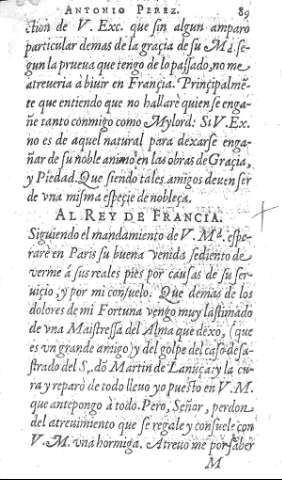 ANTONIO PEREZ. 89
ction de V. Exc. que sin algun amparo
particular demas de la graçia de su Mᵈ. se-
gun la prueua que tengo de lo passado, no me
atreueria à biuir en Françia. Prinçipalmẽ-
te que entiendo que no hallarè quien se enga-
ñe tanto conmigo como Mylord: Si V. Ex.
no es de aquel natural para dexarse enga-
ñar de su noble animo en las obras de Graçia,
y Piedad. Que siendo tales amigos deuen ser
de vna misma espeçie de nobleça.
AL REY DE FRANCIA.
Siguiendo el mandamiento de V. Mᵈ. espe-
rarè en Paris su buena venida sediento de
verme à sus reales pies por causas de su ser-
uiçio, y por mi consuelo. Que demas de los
dolores de mi Fortuna vengo muy lastimado
de vna Maistressa del Alma que dexo, (que
es vn grande amigo) y del golpe del caso desa-
strado del S. dõ Martin de Lanuça: y la cu-
ra y reparo de todo lleuo yo puesto en V. M.
que antepongo à todo. Pero, Señor, perdon
del atreuimiento que se regale y consuele con
V. M. vna hormiga. Atreuo me por saber
M